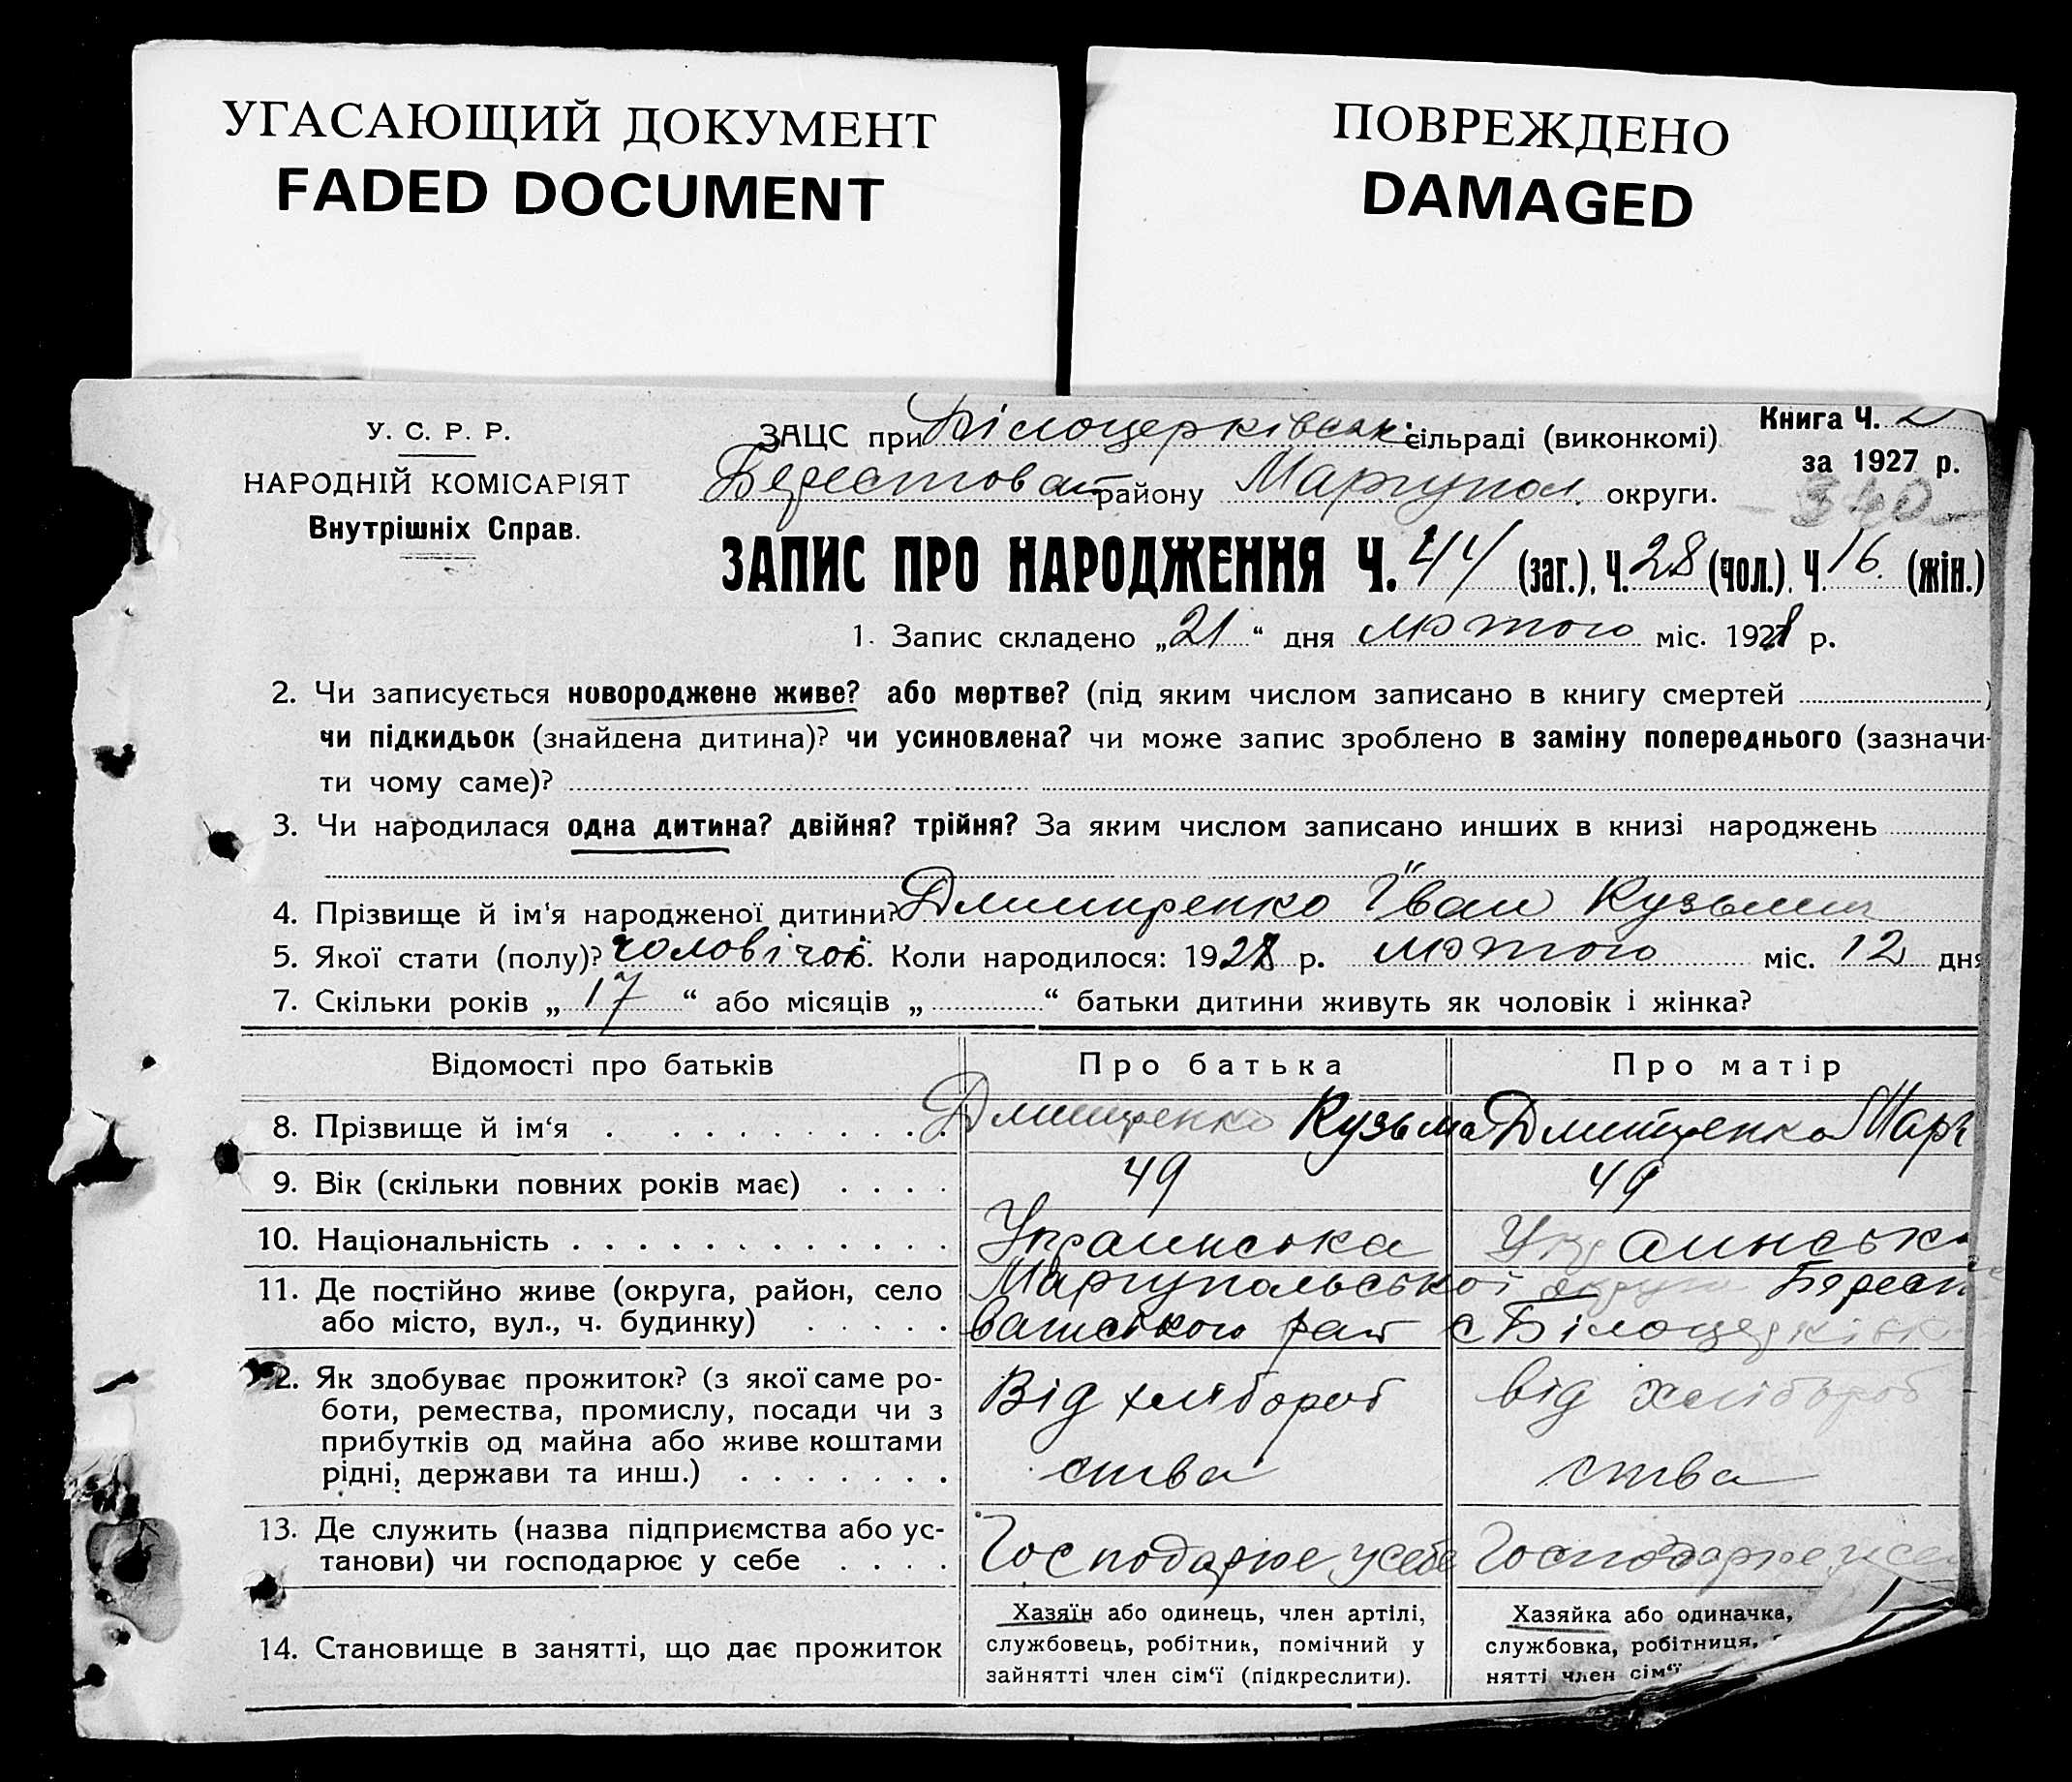 УГАСАЮЩИЙ ДОКУМЕНТ
FADED DOCUMENT
ПОВРЕЖДЕНО
DAMAGED
У. С. Р. Р.
НАРОДНІЙ КОМІСАРІЯТ
Внутрішніх Справ.
ЗАЦС при Білоцерківськ. сільраді (виконкомі)
Книга Ч. 2
за 1927 р.
району Маріупол. округи.
340
ЗАПИС ПРО НАРОДЖЕННЯ Ч. 44 (заг.), Ч. 28 (чол.), Ч. 16. (жін.)
1. Запис складено „21“ дня лютого міс. 1928 р.
2. Чи записується новороджене живе? або мертве? (під яким числом записано в книгу смертей )
чи підкидьок (знайдена дитина)? чи усиновлена? чи може запис зроблено в заміну попереднього (зазначи-
ти чому саме)?
3. Чи народилася одна дитина? двійня? трійня? За яким числом записано инших в книзі народжень
4. Прізвище й ім‘я народженої дитини? Дмитренко Іван Кузьмич
5. Якої стати (полу)? чоловічої 6. Коли народилося: 1928 р. лютого міс. 12 дня
7. Скільки років „17“ або місяців „ “ батьки дитини живуть як чоловік і жінка?
Відомості про батьків Про батька Про матір
8. Прізвище й ім‘я Дмитренко Кузьма Дмитренко Мар
9. Вік (скільки повних років має) 49 49
10. Національність Украинська Украинська
11. Де постійно живе (округа, район, село Маріупольської округи Берест
або місто, вул., ч. будинку) ватського рай с Білоцерківк
12. Як здобуває прожиток? (з якої саме ро-
боти, ремества, промислу, посади чи з Від хлібороб від хлібороб
прибутків од майна або живе коштами
рідні, держави та инш.) ства ства
13. Де служить (назва підприємства або ус-
танови) чи господарює у себе Господарює у себе Господарює у себе
Хазяїн або одинець, член артілі, Хазяйка або одиначка,
14. Становище в занятті, що дає прожиток службовець, робітник, помічний у службовка, робітниця,
зайнятті член сім‘ї (підкреслити). нятті член сім‘ї